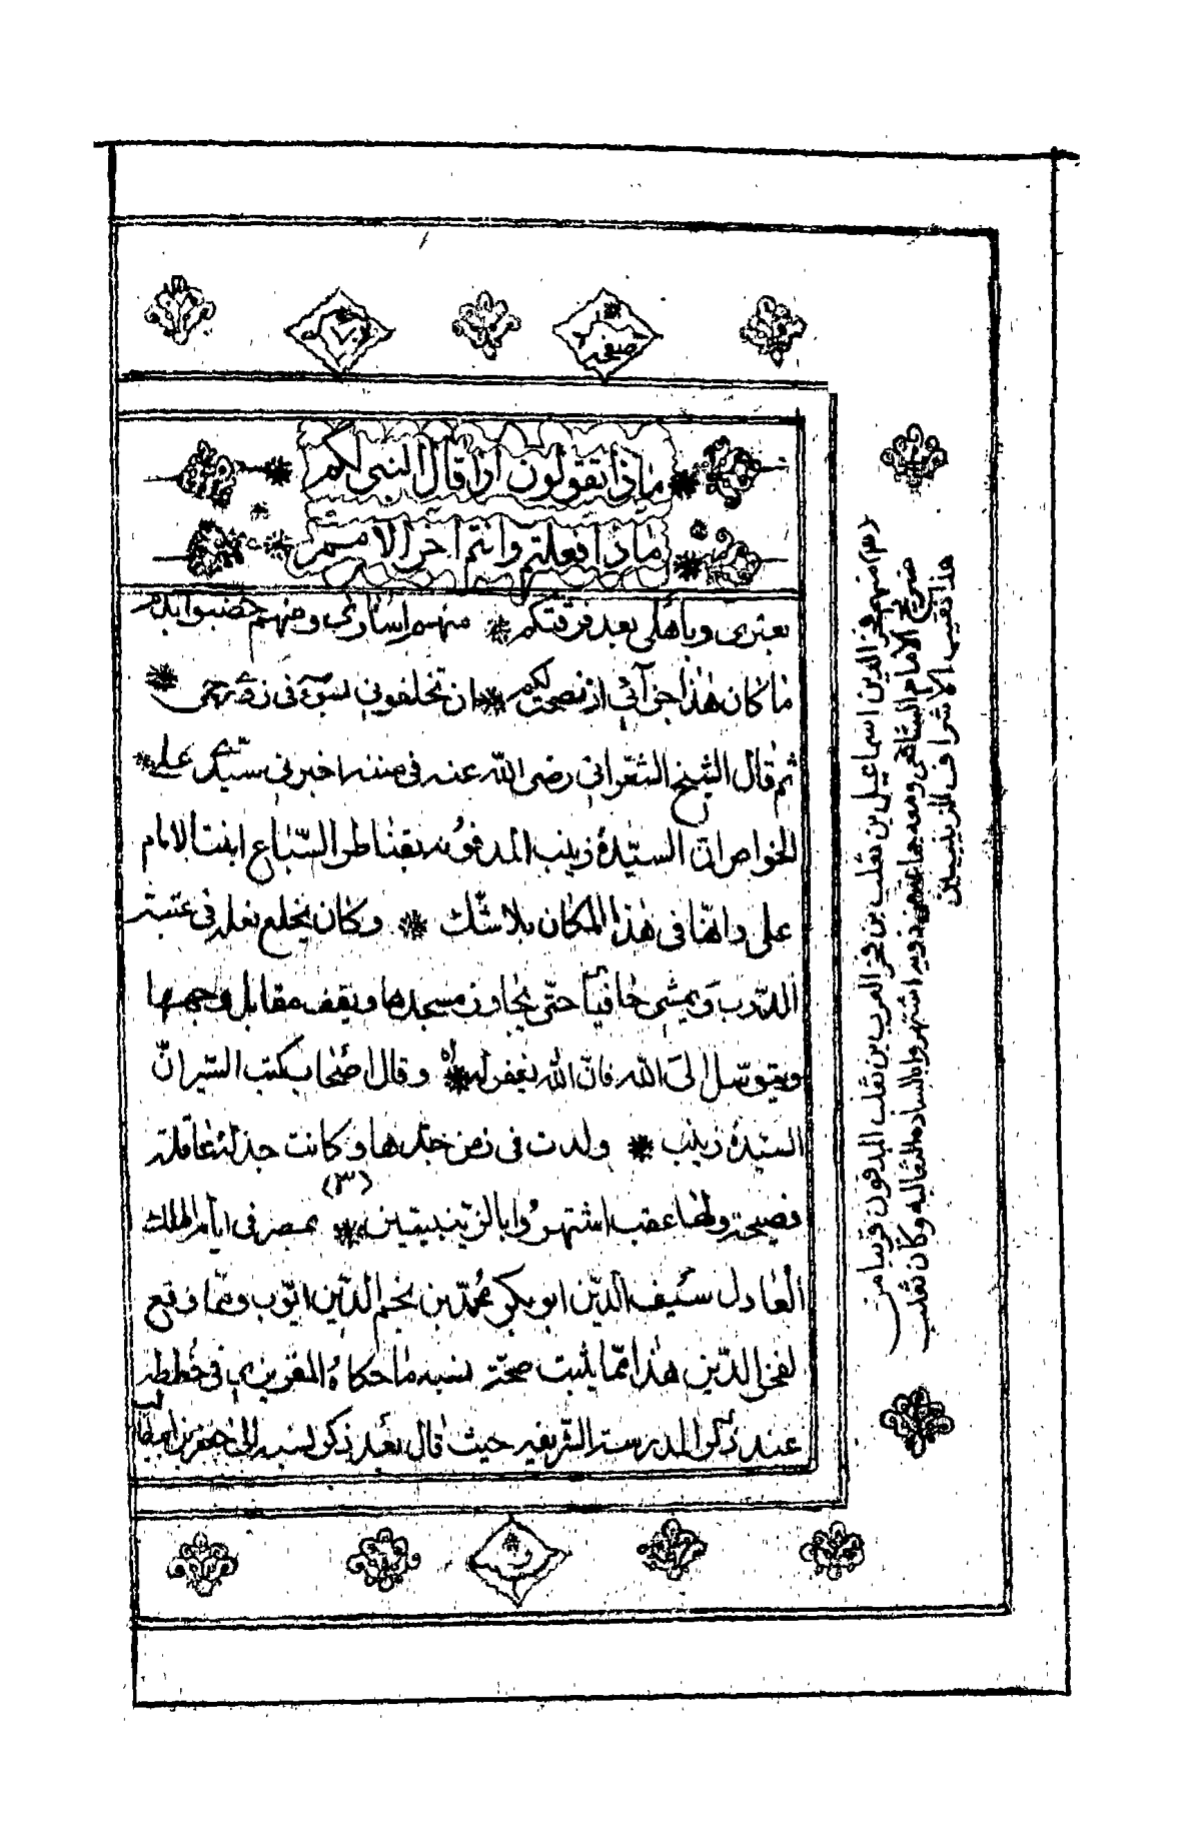 صفحة
ماذا تقولون اذ قال النبى لكم
ماذا فعلتم وانتم اخر الامم
بعترتى وبأهلى بعد فرقتكم * منهم اسارى ومنهم خضبوا بدم
ما كان هذا جزائى اذ نصحت لكم * ان تخلفونى بسوء فى ذى رحمى *
ثم قال الشيخ الشعرانى رضى الله عنه فى مننه اخبرنى سيدى على *
الخواص ان السيدة زينب المدفونه بقناطر السباع ابنت الامام
على وانها فى هذا المكان بلا شك * وكان يخلع نعله فى عتبة
الدرب ويمشى حافيا حتى يجاوز مسجدها ويقف مقابل وجهها
ويتوسل الى الله فان الله يغفر له * اه وقال اصحاب كتب السير ان
السيدة زينب * ولدت فى زمن جدها وكانت جزلة عاقلة
فصيحة ولها عقب اشتهروا بالزينبيين * (٣) بمصر فى ايام الملك
العادل سيف الدين ابو بكر محمد بن نجم الدين ايوب ومما وقع
لفخر الدين هذا مما يثبت صحة نسبه ما حكاه المقريزى فى خططه
عند ذكر المدرسة الشريفيه حيث قال بعد ذكر نسبه الى جعفر بن ابيطالب
(٣) منهم فخر الدين اسماعيل بن ثعلب بن فخر العرب بن ثعلب المدفون قريبا من
ضريح الامام الشافعى ومعه جماعة من ذويه اشتهروا بالساده الثعالبه وكان ثعلب
هذا نقيب الاشراف الزينبيين